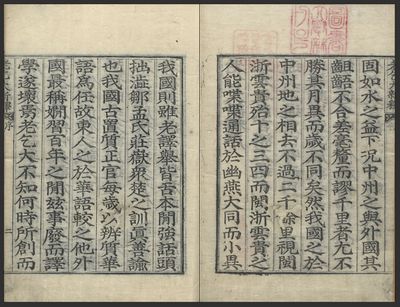 固如水之益下況中州之與外國其
齟齬不合差毫釐而謬千里者尤不
勝其月異而歲不同矣然我國之於
中州地之相去不過二千餘里視閩
浙雲貴殆十之三四而閩浙雲貴之
人能喋喋通話於幽燕大同而小異
我國則雖老譯舉皆舌本間強話頭
拙澁鄒孟氏莊嶽衆楚之訓眞善諭
也我國古置質正官每歲以辨質華
語為任故東人之於華語較之他外
國最稱嫺習百年之間茲事廢而譯
學遂壞焉老乞大不知何時所創而
老乞大新釋 序 二